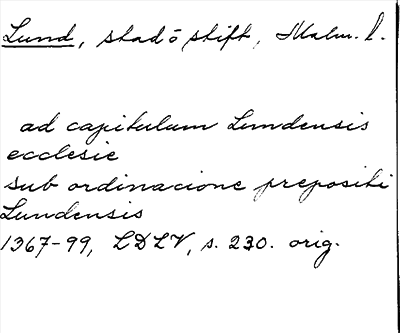 Lund, stad o stift, Malm. l.
ad capitulum Lundensis
ecclesie
sub ordinacione prepositi
Lundensis
1367-99, LDLV, s. 230. orig.